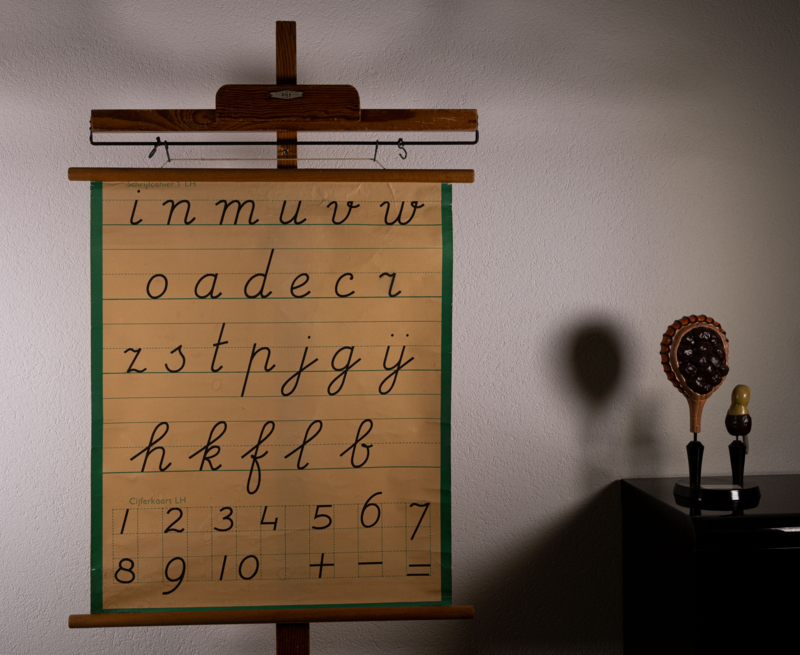 Schrijfcahier 1 LH
i n m u v w
o a d e c r
z s t p j g ij
h k f l b
Cijferkaars LH
1 2 3 4 5 6 7
8 9 10 + − =